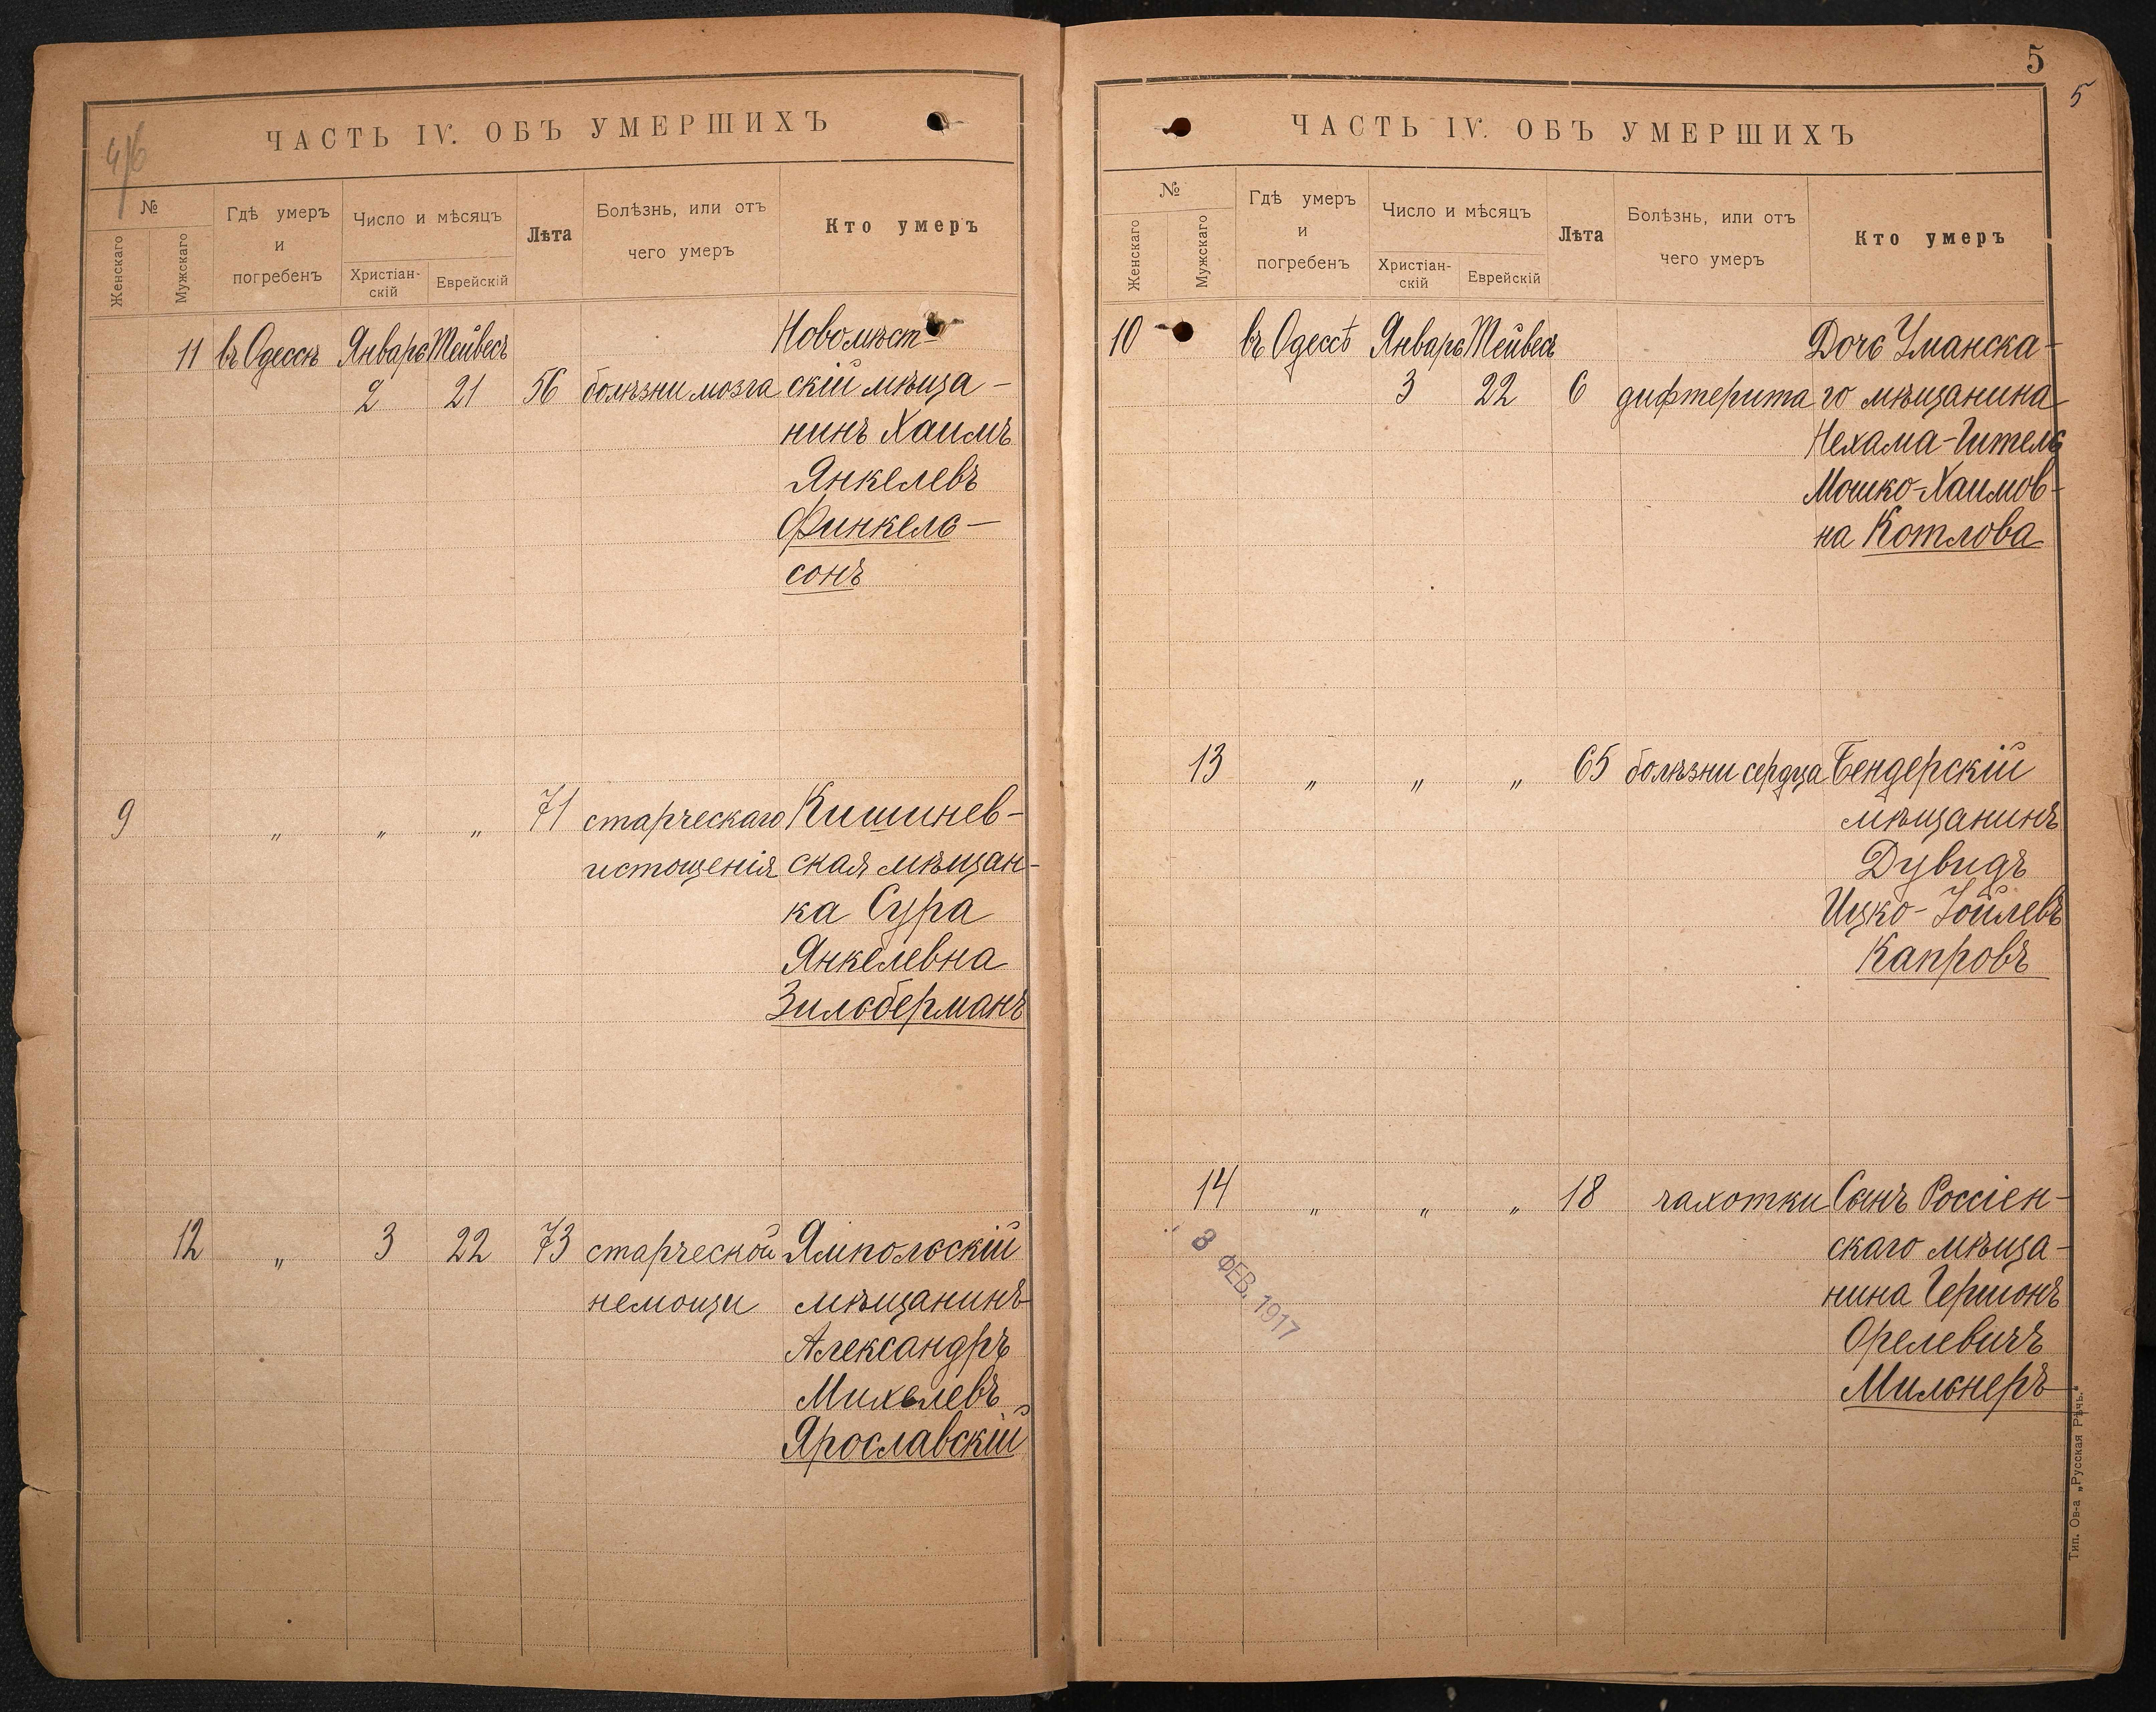 4/6
ЧАСТЬ IV. ОБЪ УМЕРШИХЪ
№
Женскаго
Мужскаго
Гдѣ умеръ
и
погребенъ
Число и мѣсяцъ
Христіан-
скій
Еврейскій
Лѣта
Болѣзнь, или отъ
чего умеръ
Кто умеръ
11 въ Одессѣ Январь Тейвесъ Новомѣст-
2 21 56 болѣзни мозга скій мѣща-
нинъ Хаимъ
Янкелевъ
Финкель-
сонъ
9 „ „ „ 71 старческаго Кишинев-
истощенія ская мѣщан-
ка Сура
Янкелевна
Зильберманъ
12 „ 3 22 73 старческой Ямпольскій
немощи мѣщанинъ
Александръ
Михелевъ
Ярославскій
5
5
ЧАСТЬ IV. ОБЪ УМЕРШИХЪ
№
Женскаго
Мужскаго
Гдѣ умеръ
и
погребенъ
Число и мѣсяцъ
Христіан-
скій
Еврейскій
Лѣта
Болѣзнь, или отъ
чего умеръ
Кто умеръ
10 въ Одессѣ Январь Тейвесъ Дочь Уманска-
3 22 6 дифтерита го мѣщанина
Нехама-Гитель
Мошко-Хаимов-
на Котлова
13 „ „ „ 65 болѣзни сердца Бендерскій
мѣщанинъ
Дувидъ
Ицко-Іойлевъ
Капровъ
14 „ „ „ 18 чахотки Сынъ Россіен-
скаго мѣща-
нина Гершонъ
Орелевичъ
Мильнеръ
8 ФЕВ. 1917
Тип. Ов-а „Русская Рѣчь."